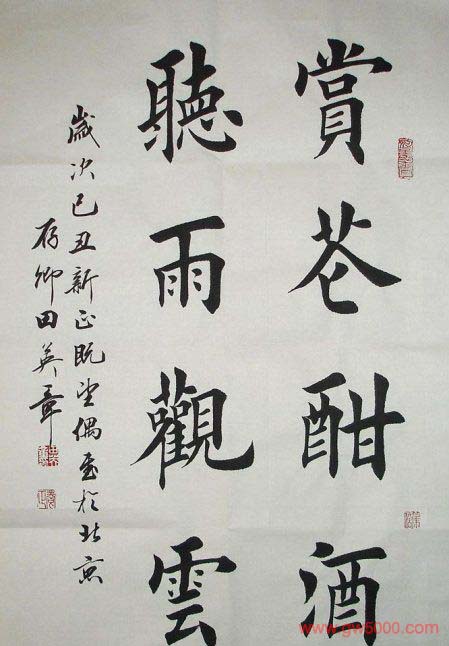 賞花酣酒
聽雨觀雲
歲次己丑新正既望偶於北京
存卿田英章
www.gw5000.com